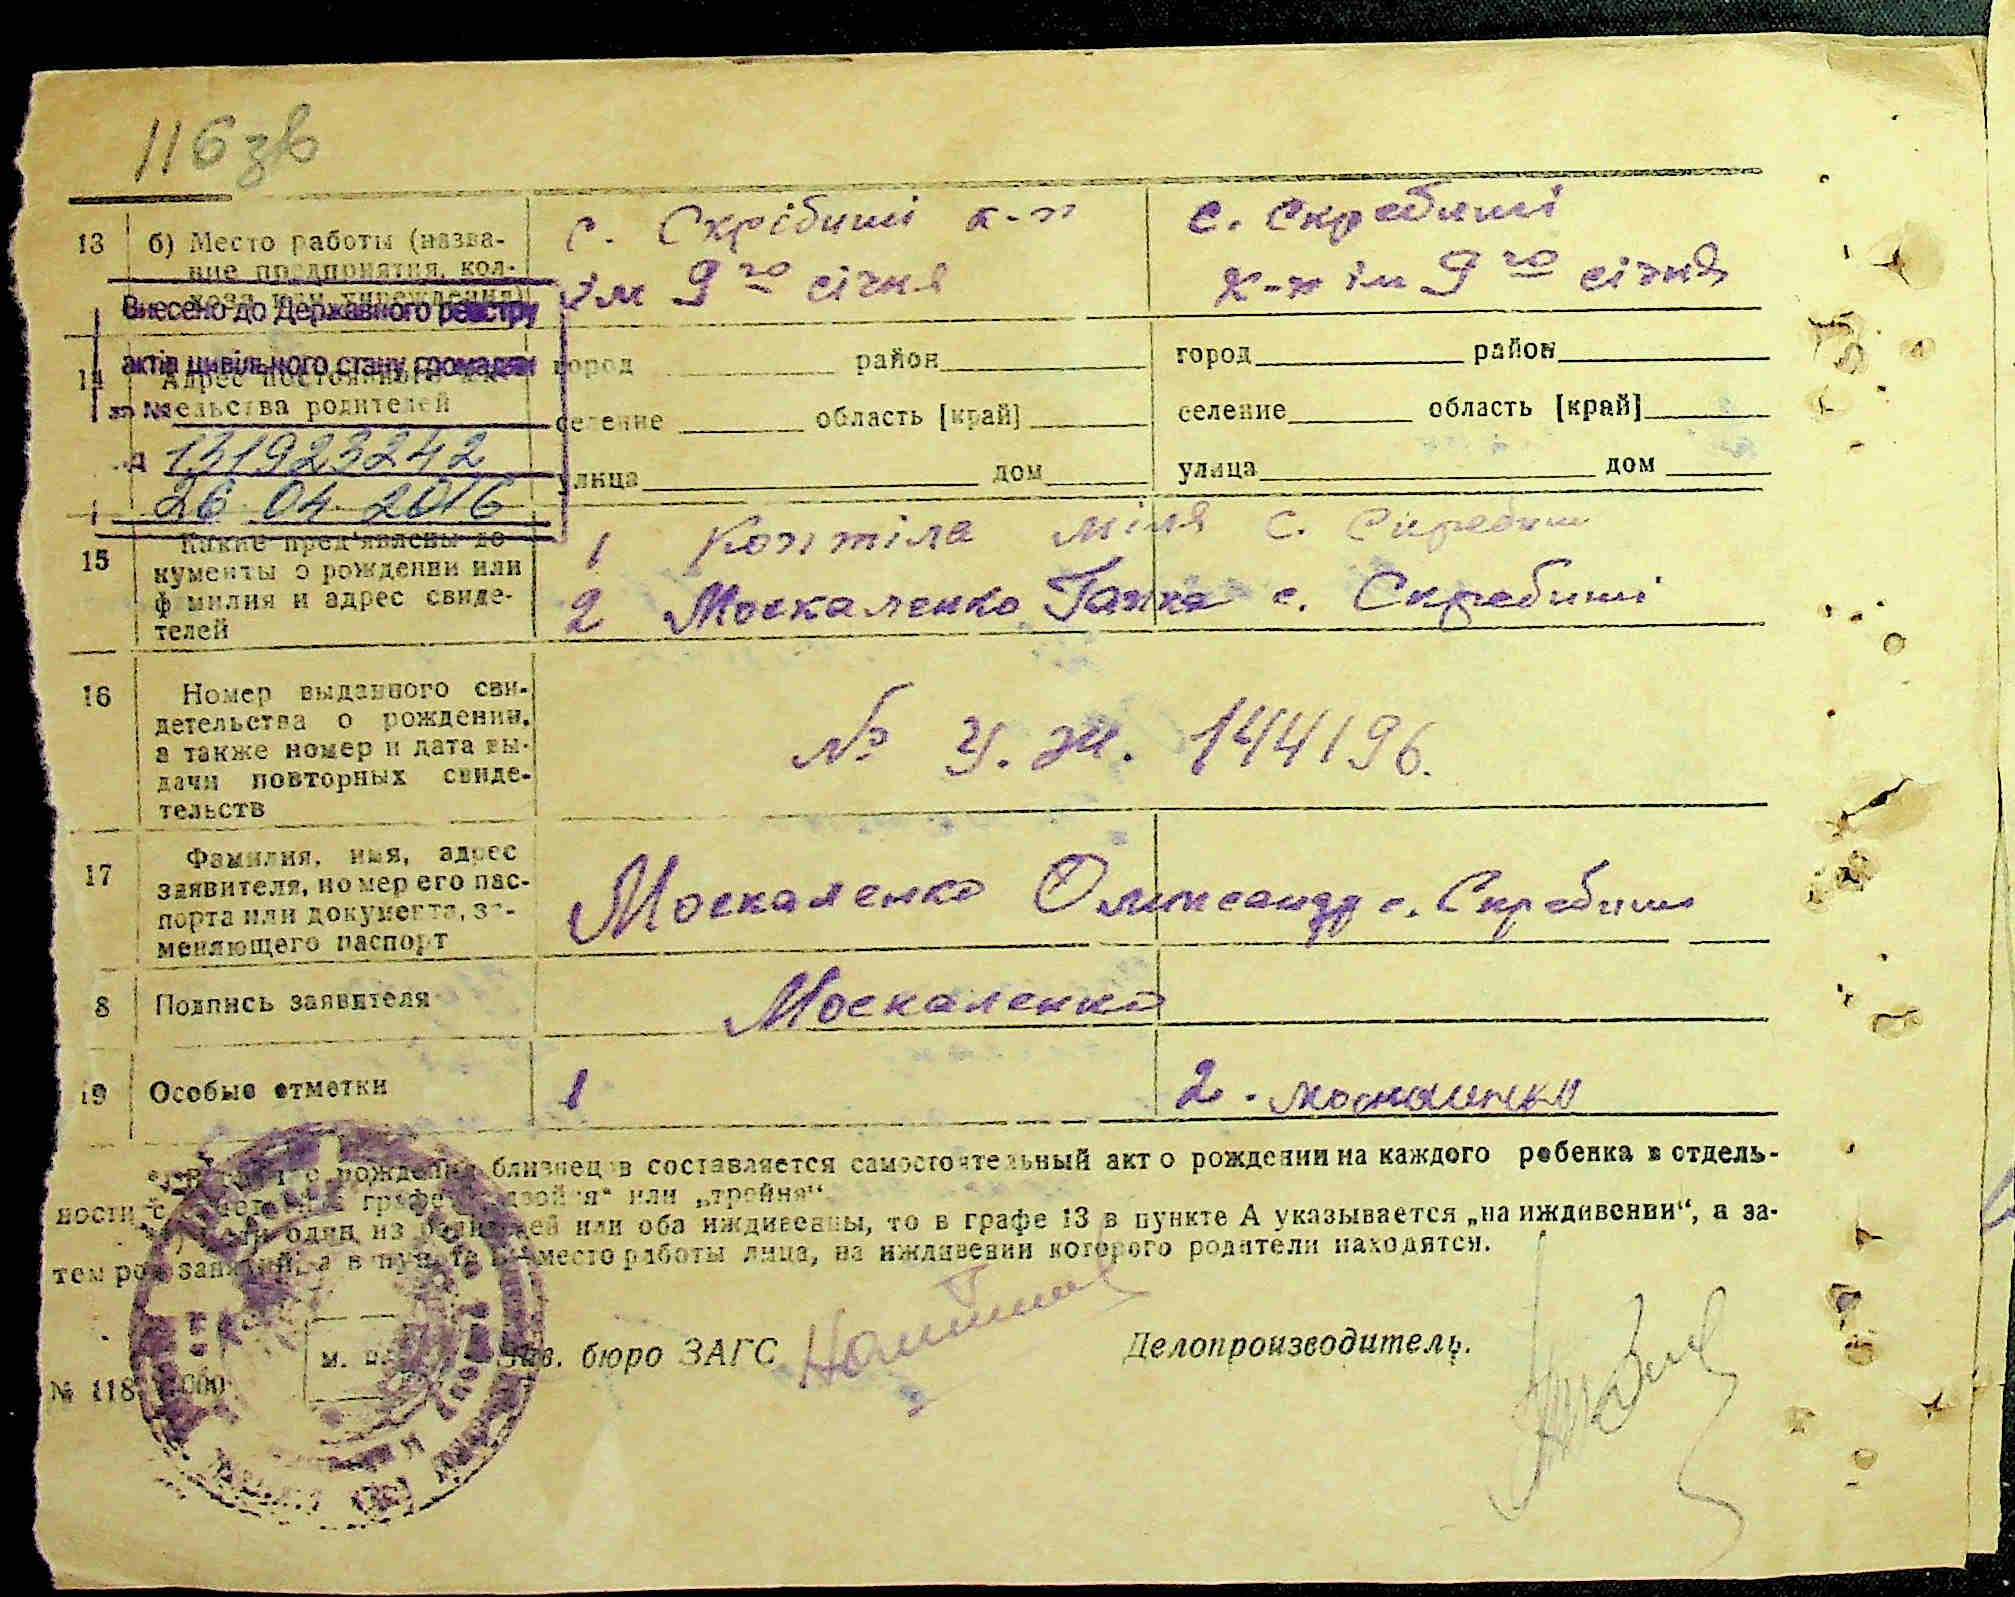 116 зв
13 б) Место работы (назва-
ние предприятия, кол-
хоза или учреждения)
с. Скрібиші к-п
ім 9го січня
с. Скребиші
к-п ім 9го січня
Внесено до Державного реєстру
актів цивільного стану громадян
за №
131923242
26 04 2016
14 Адрес постоянного жи-
тельства родителей
город район
селение область [край]
улица дом
город район
селение область [край]
улица дом
15 Какие предъявлены до-
кументы о рождении или
фамилия и адрес свиде-
телей
1 Коптіла Міля с. Скребиш
2 Москаленко Ганна с. Скребиші
16 Номер выданного сви-
детельства о рождении,
а также номер и дата вы-
дачи повторных свиде-
тельств
№ У. Ж. 144196.
17 Фамилия, имя, адрес
заявителя, номер его пас-
порта или документа, за-
меняющего паспорт
Москаленко Олександр с. Скребиш
8 Подпись заявителя
Москаленко
19 Особые отметки
1
2. Москаленко
рождения близнецов составляется самостоятельный акт о рождении на каждого ребенка в отдель-
ности с графе „двойня“ или „тройня“
один из родителей или оба иждивенцы, то в графе 13 в пункте А указывается „на иждивении“, а за-
тем род занятий, а в пункте Б место работы лица, на иждивении которого родители находятся.
м. п.
Зав. бюро ЗАГС
Делопроизводитель.
№ 118